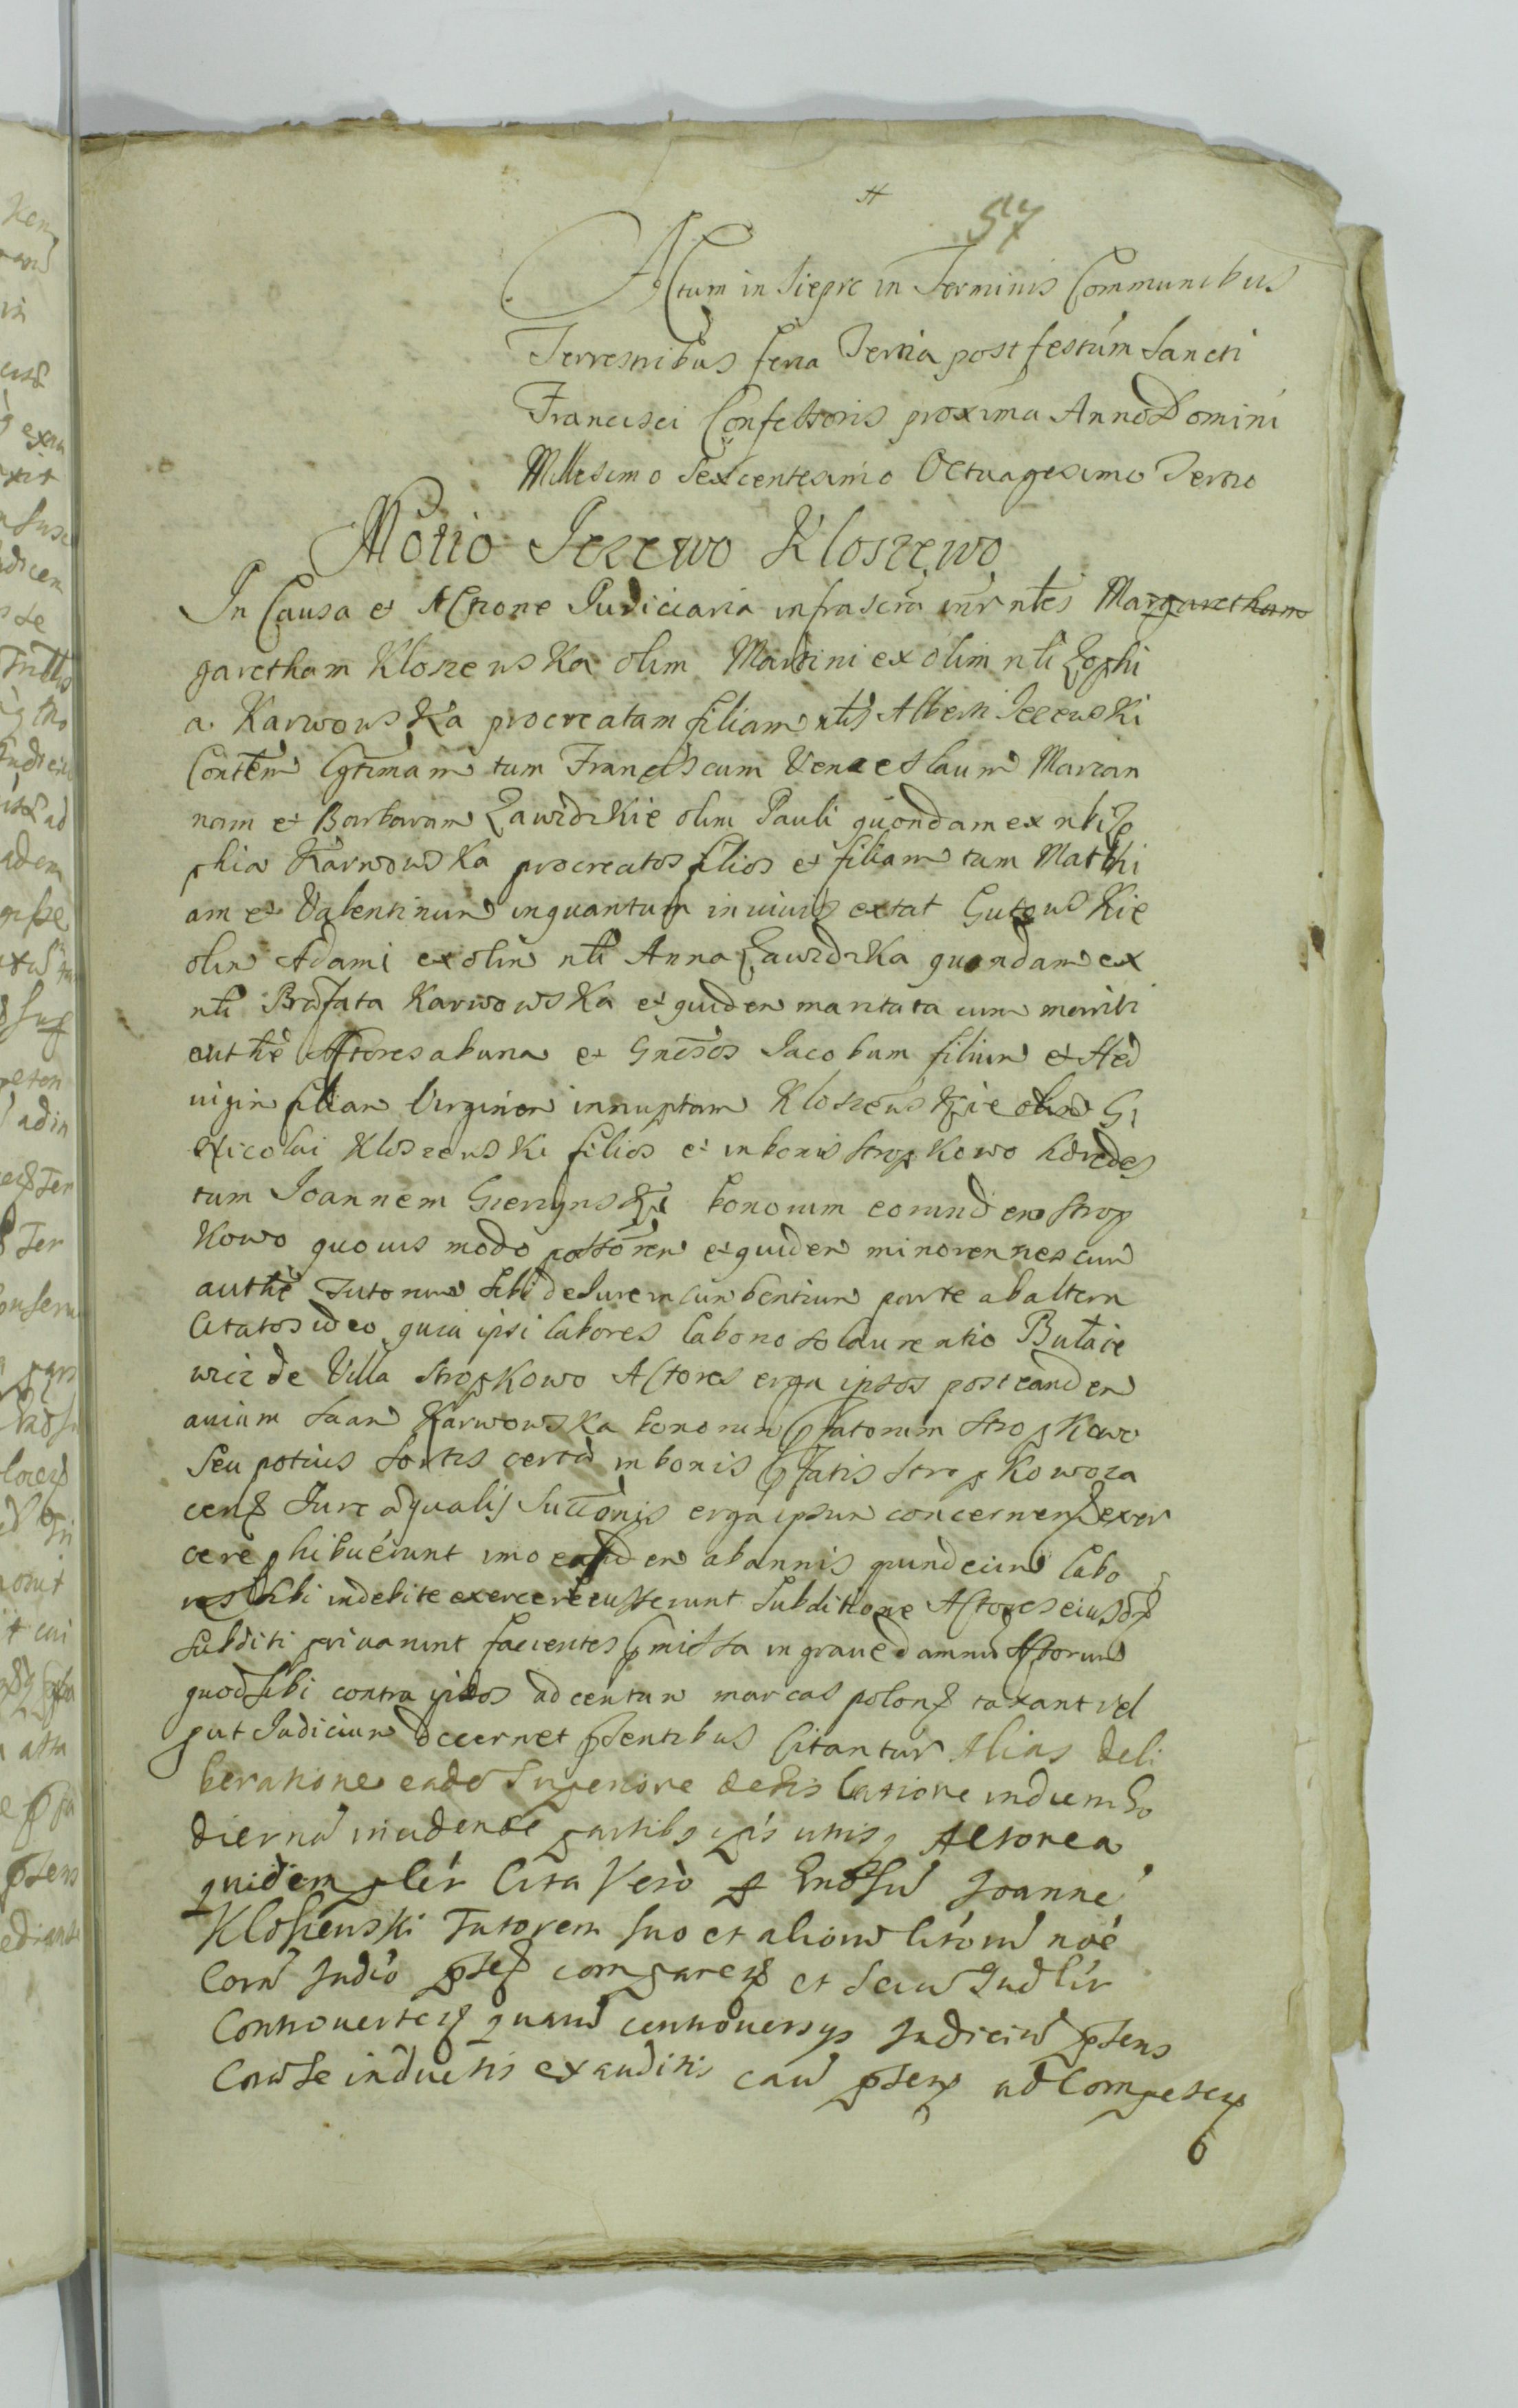 57
Actum in Siepre in Terminis Communibus
Terrestribus feria Tertia post festum Sancti
Francisci Confessoris proxima Anno Domini
Millesimo Sexcentesimo Octuagesimo Tertio
Motio Jezewo Kloszewo
In Causa et Actione Judiciaria infrascra intr nles Margaretham
garetham Kloszewska olim Martini ex olim nli Zophi
a Karwowska procreatam filiam nlis Alberti Jezewski
Conthem lgtimam tum Franciscum Venceslaum Marian
nam et Barbaram Zawidzkie olim Pauli quondam ex nbi Zo
phia Karwowska procreatos filios et filiam tum Matthi
am et Valentinum inquantum in uiuis extat Gutowskie
olim Adami ex olim nli Anna Zawidzka quondam ex
nli Karwowska et quidem maritata cum mariti
authe Actores ab una et Gnesos Jacobum filium et Hed
uigim filiam Virginem innuptam Kloszewskie olim G
Nicolai Kloszewski filios et in bonis Stropkowo hæredes
tum Joannem bonorum eorundem Strop
kowo quouis modo possorem et quidem minorennes cum
authe Tutorum sibi de Jure incumbentium parte ab altera
Citatos ideo quia ipsi labores laborioso Laurentio
wicz de Villa Stropkowo Actores erga ipsos post eandem
auiam suam Karwowska bonorum pfatorum Stropkowo
Seu potius Sortis certæ in bonis pfatis Stropkowo za
cen Jure æqualis Succonis erga ipsum concernen exer
cere phibuerunt imo eundem ab annis quindecim labo
res sibi indebite exercere iusserunt Subditione Actores eiusd
Subditi priuarunt facientes pmissa in graue damnum Actorum
quod sibi contra ipsos ad centum marcas polon taxant vel
put Judicium decernet psentibus Citantur Alias deli
beratione eade Superiore latione in diem ho
diernam incidente partibus ipis utrisq Actorea
quidem pler Cita Vero p Gnosum Joanne
Kloszewski Tutorem suo et aliorum litorum noe
Coram Judio psen comparen et Secum Judlir
Controuerten quarum controuersys Judicium psens
Coram se inductis exauditis cam psen ad Competen
6